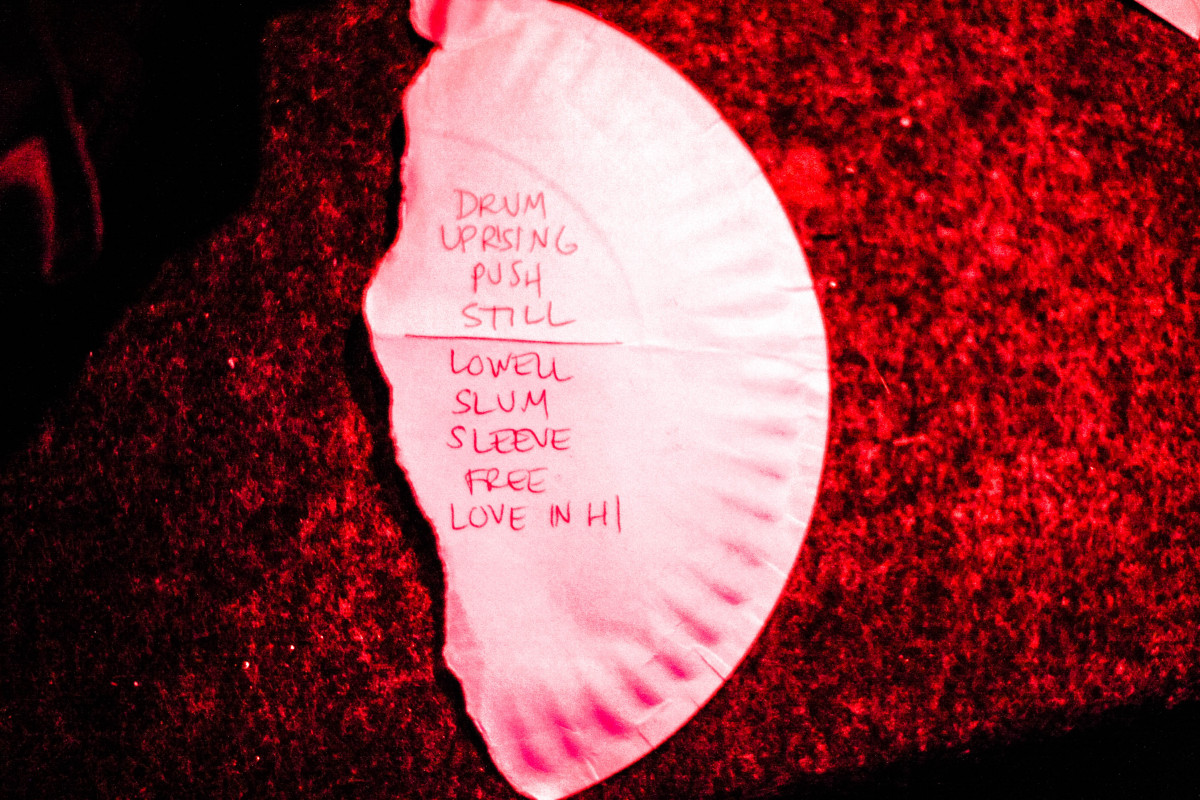 DRUM
UPRISING
PUSH
STILL
LOWELL
SLUM
SLEEVE
FREE
LOVE IN HI